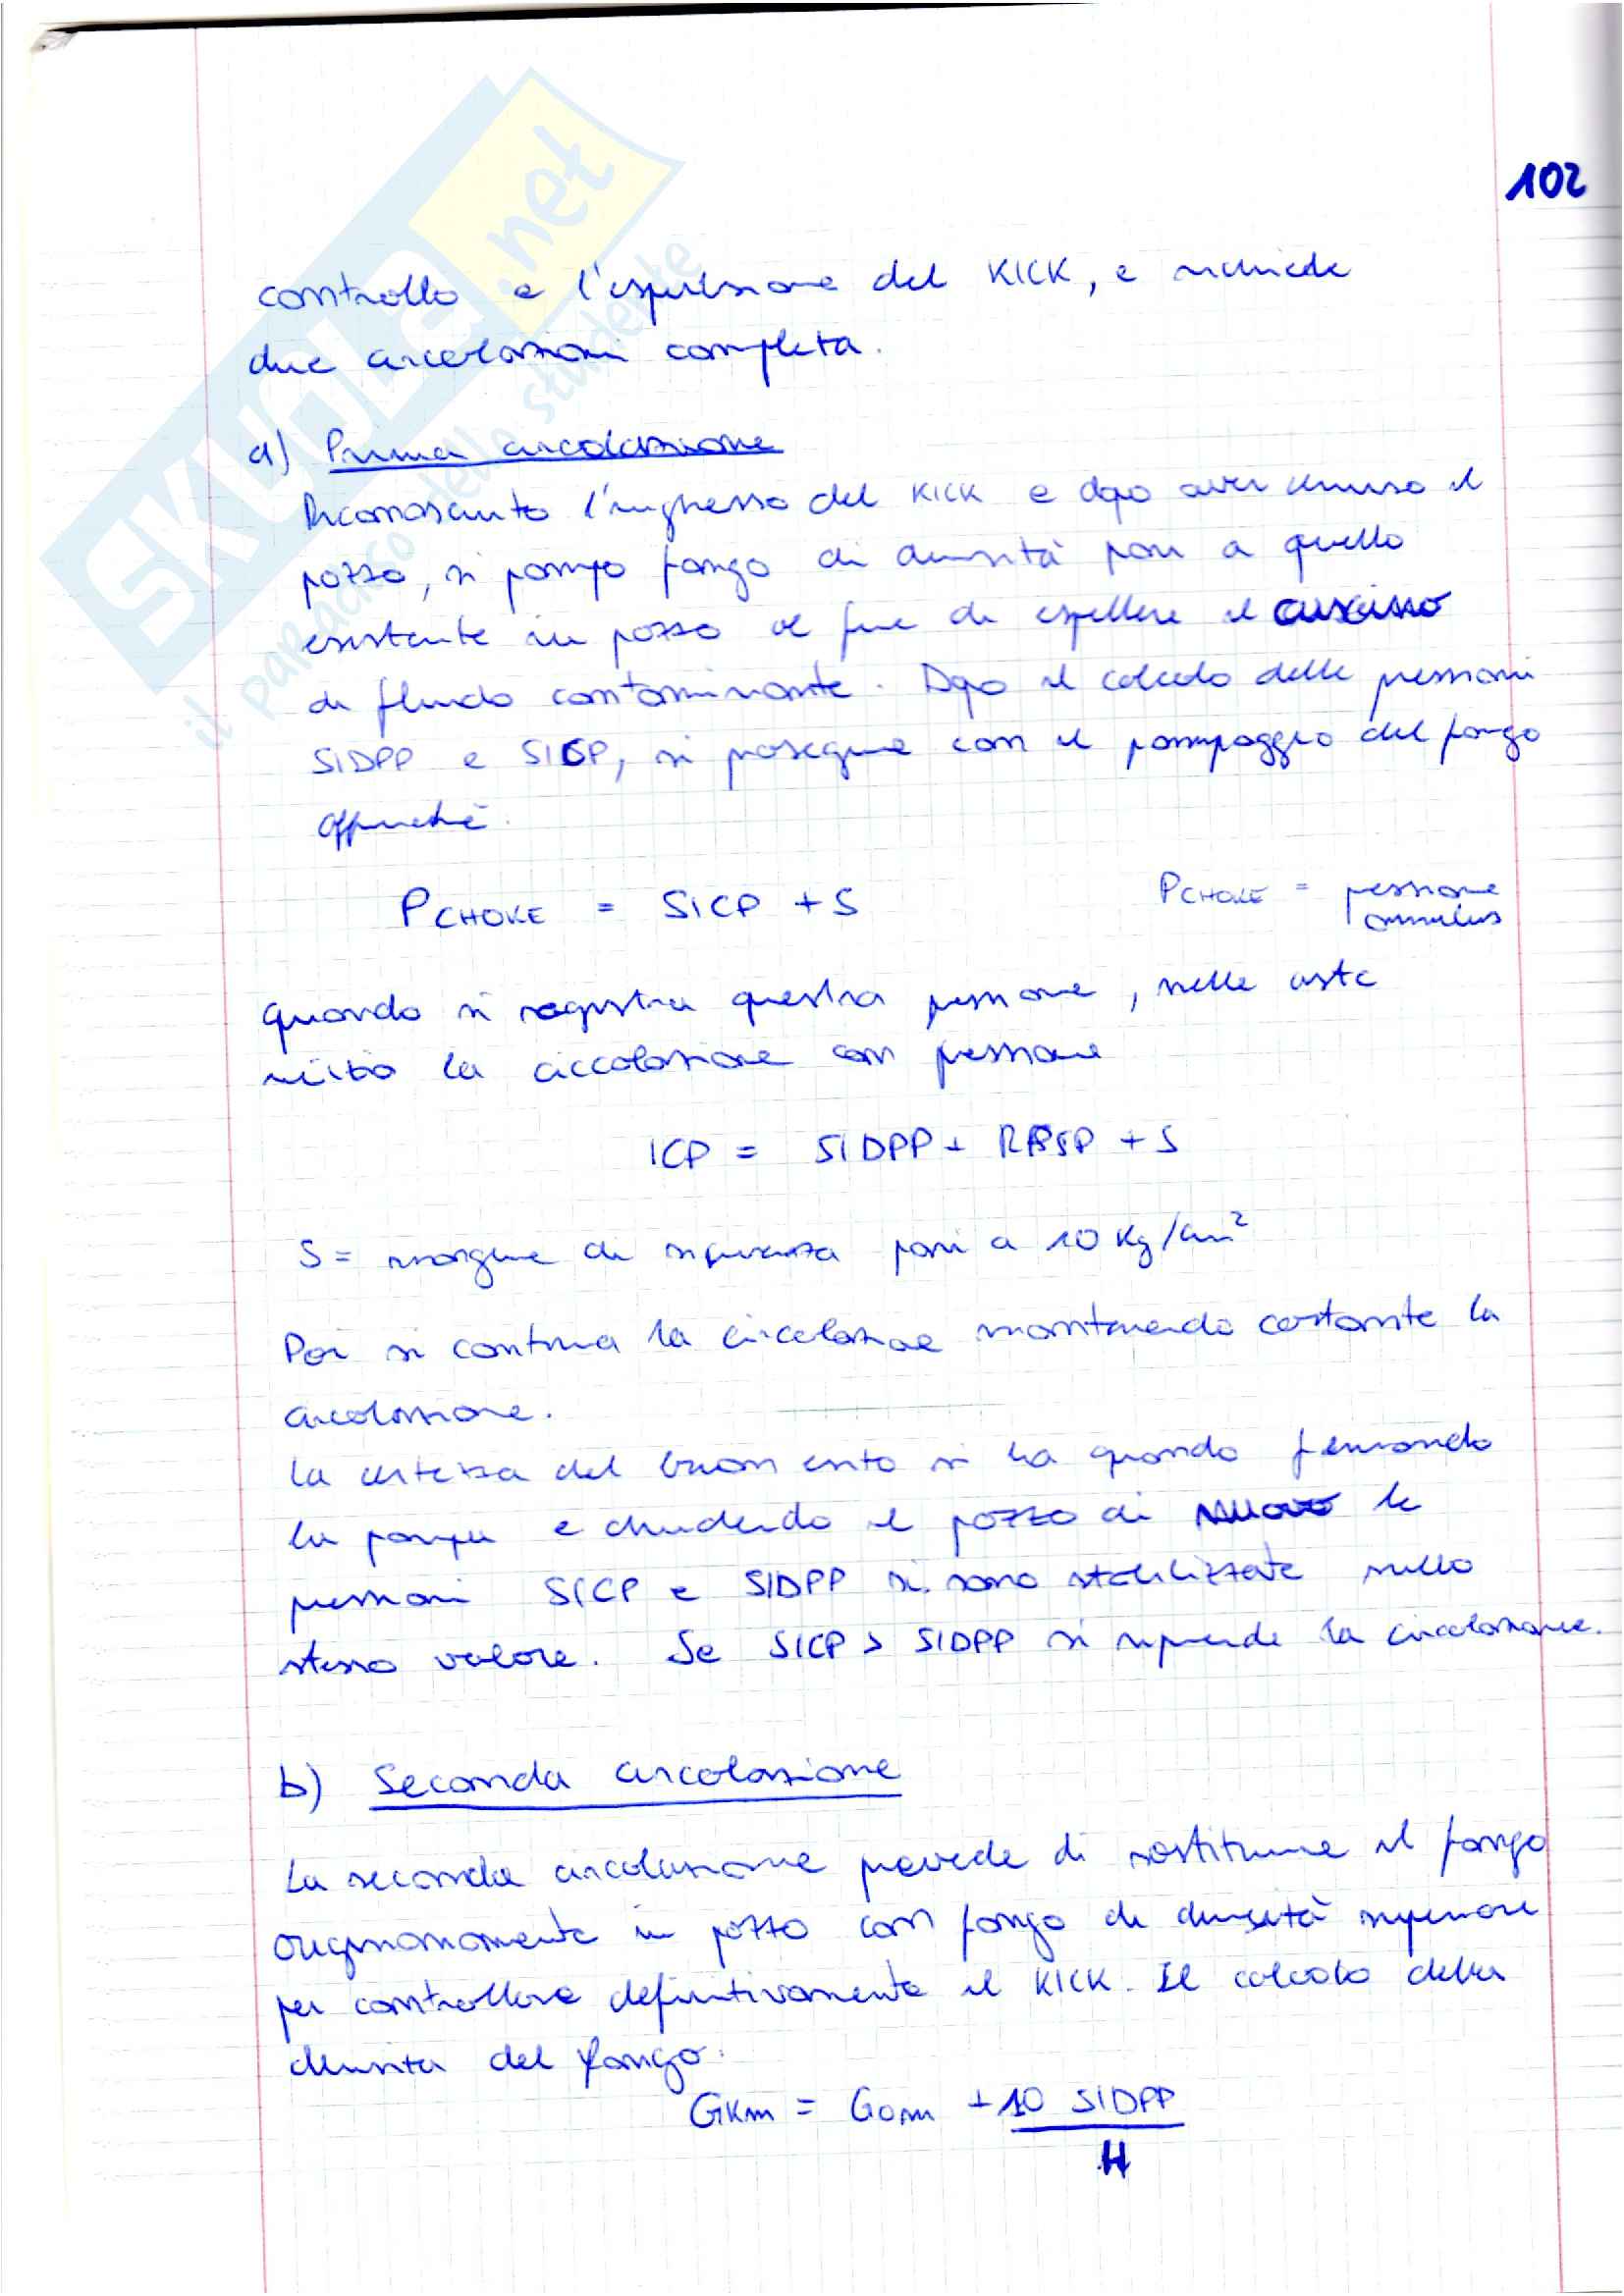 102
controllo e l'espulsione del KICK, e richiede
due circolazioni completa.
a) Prima circolazione
Riconosciuto l'ingresso del KICK e dopo aver chiuso il
pozzo, si pompa fango di densità pari a quello
esistente in pozzo al fine di espellere il cuscino
di fluido contaminante. Dopo il calcolo delle pressioni
SIDPP e SICP, si prosegue con il pompaggio del fango
affinché:
PCHOKE = SICP + S
PCHOKE = pressione
annulus
Quando si registra questa pressione, nelle aste
inizio la ciccolazione con pressione
ICP = SIDPP + RPSP + S
S = margine di sicurezza pari a 10 Kg/cm²
Poi si continua la circolazione mantenendo costante la
circolazione.
La certezza del buon esito si ha quando fermando
la pompa e chiudendo il pozzo di nuovo le
pressioni SICP e SIDPP si sono stabilizzate sullo
stesso valore. Se SICP > SIDPP si riprende la circolazione.
b) Seconda circolazione
La seconda circolazione prevede di sostituire il fango
originariamente in pozzo con fango di densità superiore
per controllare definitivamente il KICK. Il calcolo della
densità del fango:
GKm = GOm + 10 SIDPP
H
SKUOLA.net
il paradiso dello studente